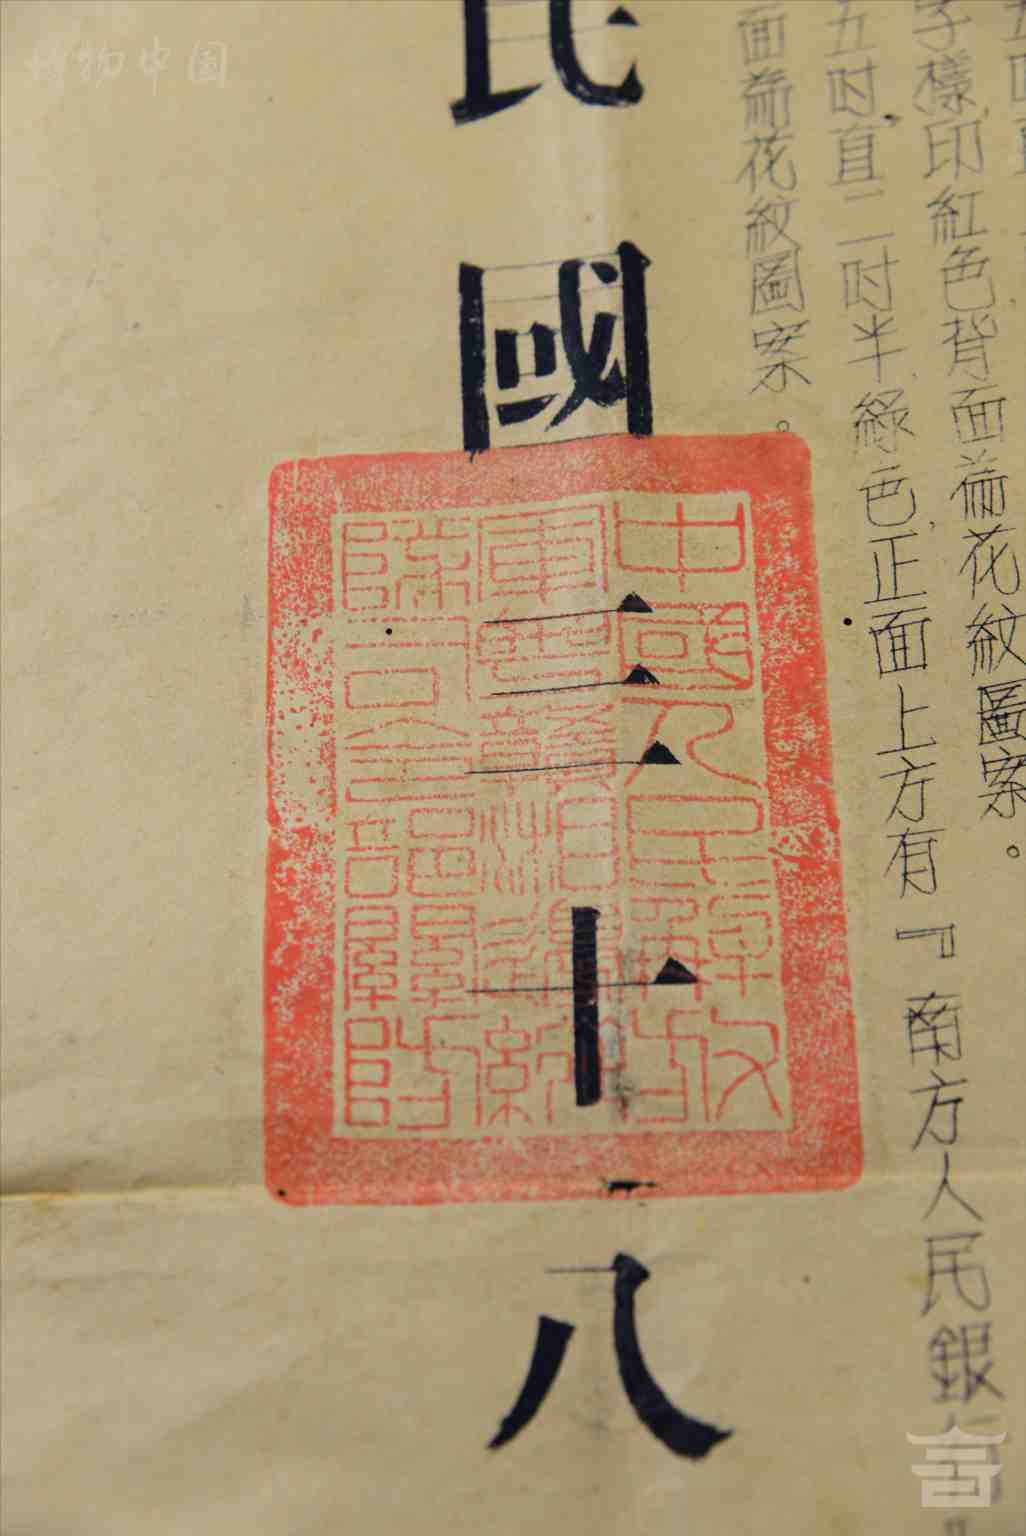 字樣,印紅色背面為花紋圖案。
五吋直二吋半,綠色,正面上方有『南方人民銀行
面為花紋圖案。
民國三十八
中國人民解放
軍粵贛湘邊縱
隊司令部關防
博物中国